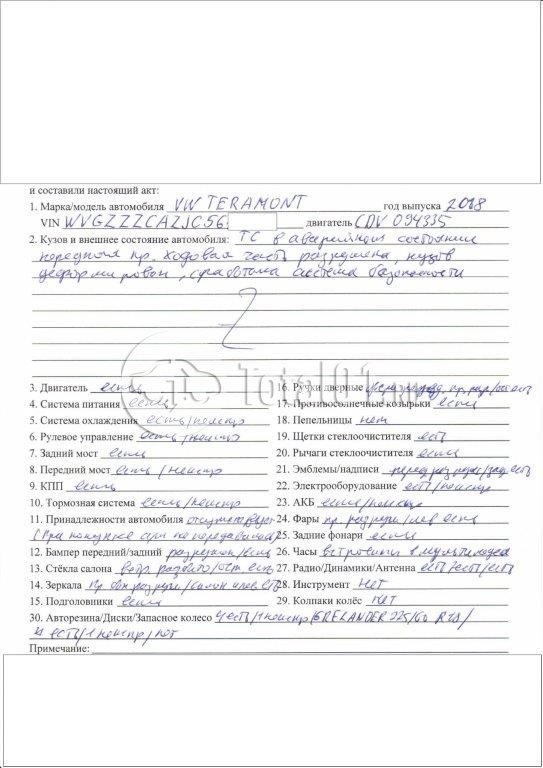 и составили настоящий акт:
1. Марка/модель автомобиля VW TERAMONT год выпуска 2018
VIN WVGZZZCAZJC56 двигатель CDV 094335
2. Кузов и внешнее состояние автомобиля: ТС в аварийном состоянии
передняя пр. ходовая часть разрушена, кузов
деформирован, сработала система безопасности
Total01.ru
3. Двигатель есть
16. Ручки дверные
4. Система питания есть
17. Противосолнечные козырьки есть
5. Система охлаждения есть/неиспр
18. Пепельницы нет
6. Рулевое управление есть/неиспр
19. Щетки стеклоочистителя есть
7. Задний мост есть
20. Рычаги стеклоочистителя есть
8. Передний мост есть/неиспр
21. Эмблемы/надписи
9. КПП есть
22. Электрооборудование есть/неиспр
10. Тормозная система есть/неиспр
23. АКБ есть
11. Принадлежности автомобиля отсутствуют
24. Фары пр. разруш/лев есть
(При покупке не передавались)
25. Задние фонари есть
12. Бампер передний/задний разрушен/есть
26. Часы встроены в мультимедиа
13. Стёкла салона разбито/ост. есть
27. Радио/Динамики/Антенна есть/есть/есть
14. Зеркала разруш/салон и лев есть
28. Инструмент нет
15. Подголовники есть
29. Колпаки колёс нет
30. Авторезина/Диски/Запасное колесо 4 есть/1 неиспр/GRELANDER 225/60 R18/
4 есть/1 неиспр/нет
Примечание: